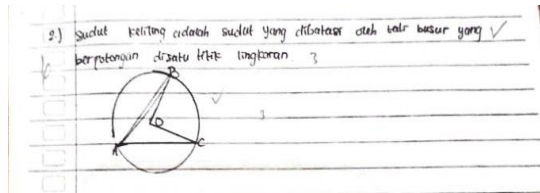 2.) Sudut keliling adalah sudut yang dibatasi oleh tali busur yang
berpotongan disatu titik lingkaran 3
B
O
A
C